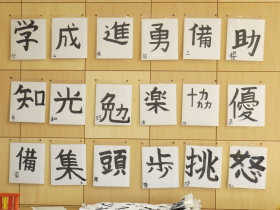 学 成 進 勇 備 助
知 光 勉 楽 協 優
備 集 頭 歩 挑 怒